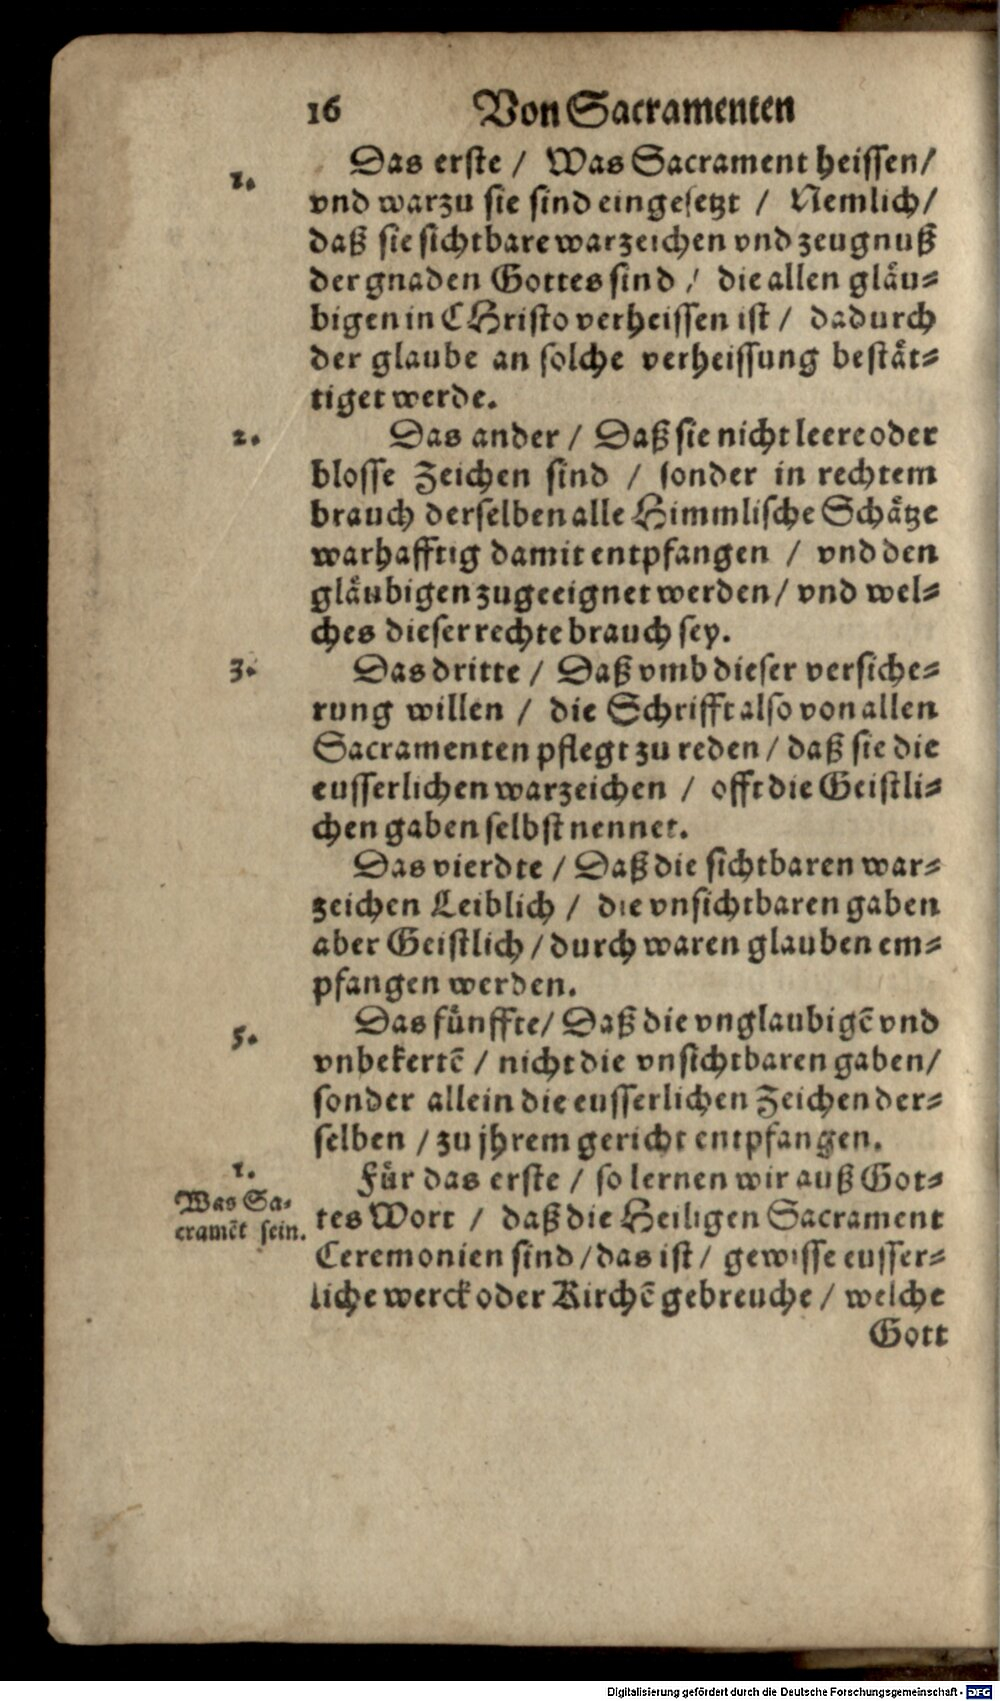 16 Von Sacramenten
1. Das erste / Was Sacrament heissen/
vnd warzu sie sind eingesetzt / Nemlich/
daß sie sichtbare warzeichen vnd zeugnuß
der gnaden Gottes sind / die allen gläu-
bigen in CHristo verheissen ist / dadurch
der glaube an solche verheissung bestät-
tiget werde.
2. Das ander / Daß sie nicht leere oder
blosse Zeichen sind / sonder in rechtem
brauch derselben alle Himmlische Schätze
warhafftig damit entpfangen / vnd den
gläubigen zugeeignet werden/ vnd wel-
ches dieser rechte brauch sey.
3. Das dritte / Daß vmb dieser versiche-
rung willen / die Schrifft also von allen
Sacramenten pflegt zu reden / daß sie die
eusserlichen warzeichen / offt die Geistli-
chen gaben selbst nennet.
Das vierdte / Daß die sichtbaren war-
zeichen Leiblich / die vnsichtbaren gaben
aber Geistlich / durch waren glauben em-
pfangen werden.
5. Das fünffte/ Daß die vnglaubigẽ vnd
vnbekertẽ / nicht die vnsichtbaren gaben/
sonder allein die eusserlichen Zeichen der-
selben / zu jhrem gericht entpfangen.
1.
Was Sa-
cramẽt sein.
Für das erste / so lernen wir auß Got-
tes Wort / daß die Heiligen Sacrament
Ceremonien sind / das ist / gewisse eusser-
liche werck oder Kirchẽ gebreuche / welche
Gott
Digitalisierung gefördert durch die Deutsche Forschungsgemeinschaft - DFG